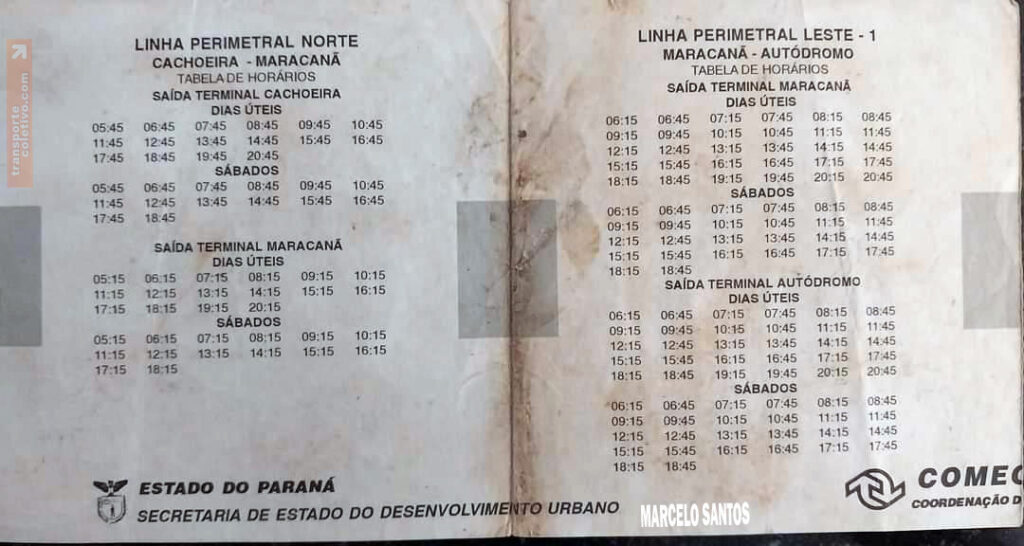 transporte
coletivo.com
LINHA PERIMETRAL NORTE
CACHOEIRA - MARACANÃ
TABELA DE HORÁRIOS
SAÍDA TERMINAL CACHOEIRA
DIAS ÚTEIS
05:45 06:45 07:45 08:45 09:45 10:45
11:45 12:45 13:45 14:45 15:45 16:45
17:45 18:45 19:45 20:45
SÁBADOS
05:45 06:45 07:45 08:45 09:45 10:45
11:45 12:45 13:45 14:45 15:45 16:45
17:45 18:45
SAÍDA TERMINAL MARACANÃ
DIAS ÚTEIS
05:15 06:15 07:15 08:15 09:15 10:15
11:15 12:15 13:15 14:15 15:15 16:15
17:15 18:15 19:15 20:15
SÁBADOS
05:15 06:15 07:15 08:15 09:15 10:15
11:15 12:15 13:15 14:15 15:15 16:15
17:15 18:15
ESTADO DO PARANÁ
SECRETARIA DE ESTADO DO DESENVOLVIMENTO URBANO
LINHA PERIMETRAL LESTE - 1
MARACANÃ - AUTÓDROMO
TABELA DE HORÁRIOS
SAÍDA TERMINAL MARACANÃ
DIAS ÚTEIS
06:15 06:45 07:15 07:45 08:15 08:45
09:15 09:45 10:15 10:45 11:15 11:45
12:15 12:45 13:15 13:45 14:15 14:45
15:15 15:45 16:15 16:45 17:15 17:45
18:15 18:45 19:15 19:45 20:15 20:45
SÁBADOS
06:15 06:45 07:15 07:45 08:15 08:45
09:15 09:45 10:15 10:45 11:15 11:45
12:15 12:45 13:15 13:45 14:15 14:45
15:15 15:45 16:15 16:45 17:15 17:45
18:15 18:45
SAÍDA TERMINAL AUTÓDROMO
DIAS ÚTEIS
06:15 06:45 07:15 07:45 08:15 08:45
09:15 09:45 10:15 10:45 11:15 11:45
12:15 12:45 13:15 13:45 14:15 14:45
15:15 15:45 16:15 16:45 17:15 17:45
18:15 18:45 19:15 19:45 20:15 20:45
SÁBADOS
06:15 06:45 07:15 07:45 08:15 08:45
09:15 09:45 10:15 10:45 11:15 11:45
12:15 12:45 13:15 13:45 14:15 14:45
15:15 15:45 16:15 16:45 17:15 17:45
18:15 18:45
COMEC
COORDENAÇÃO D
MARCELO SANTOS